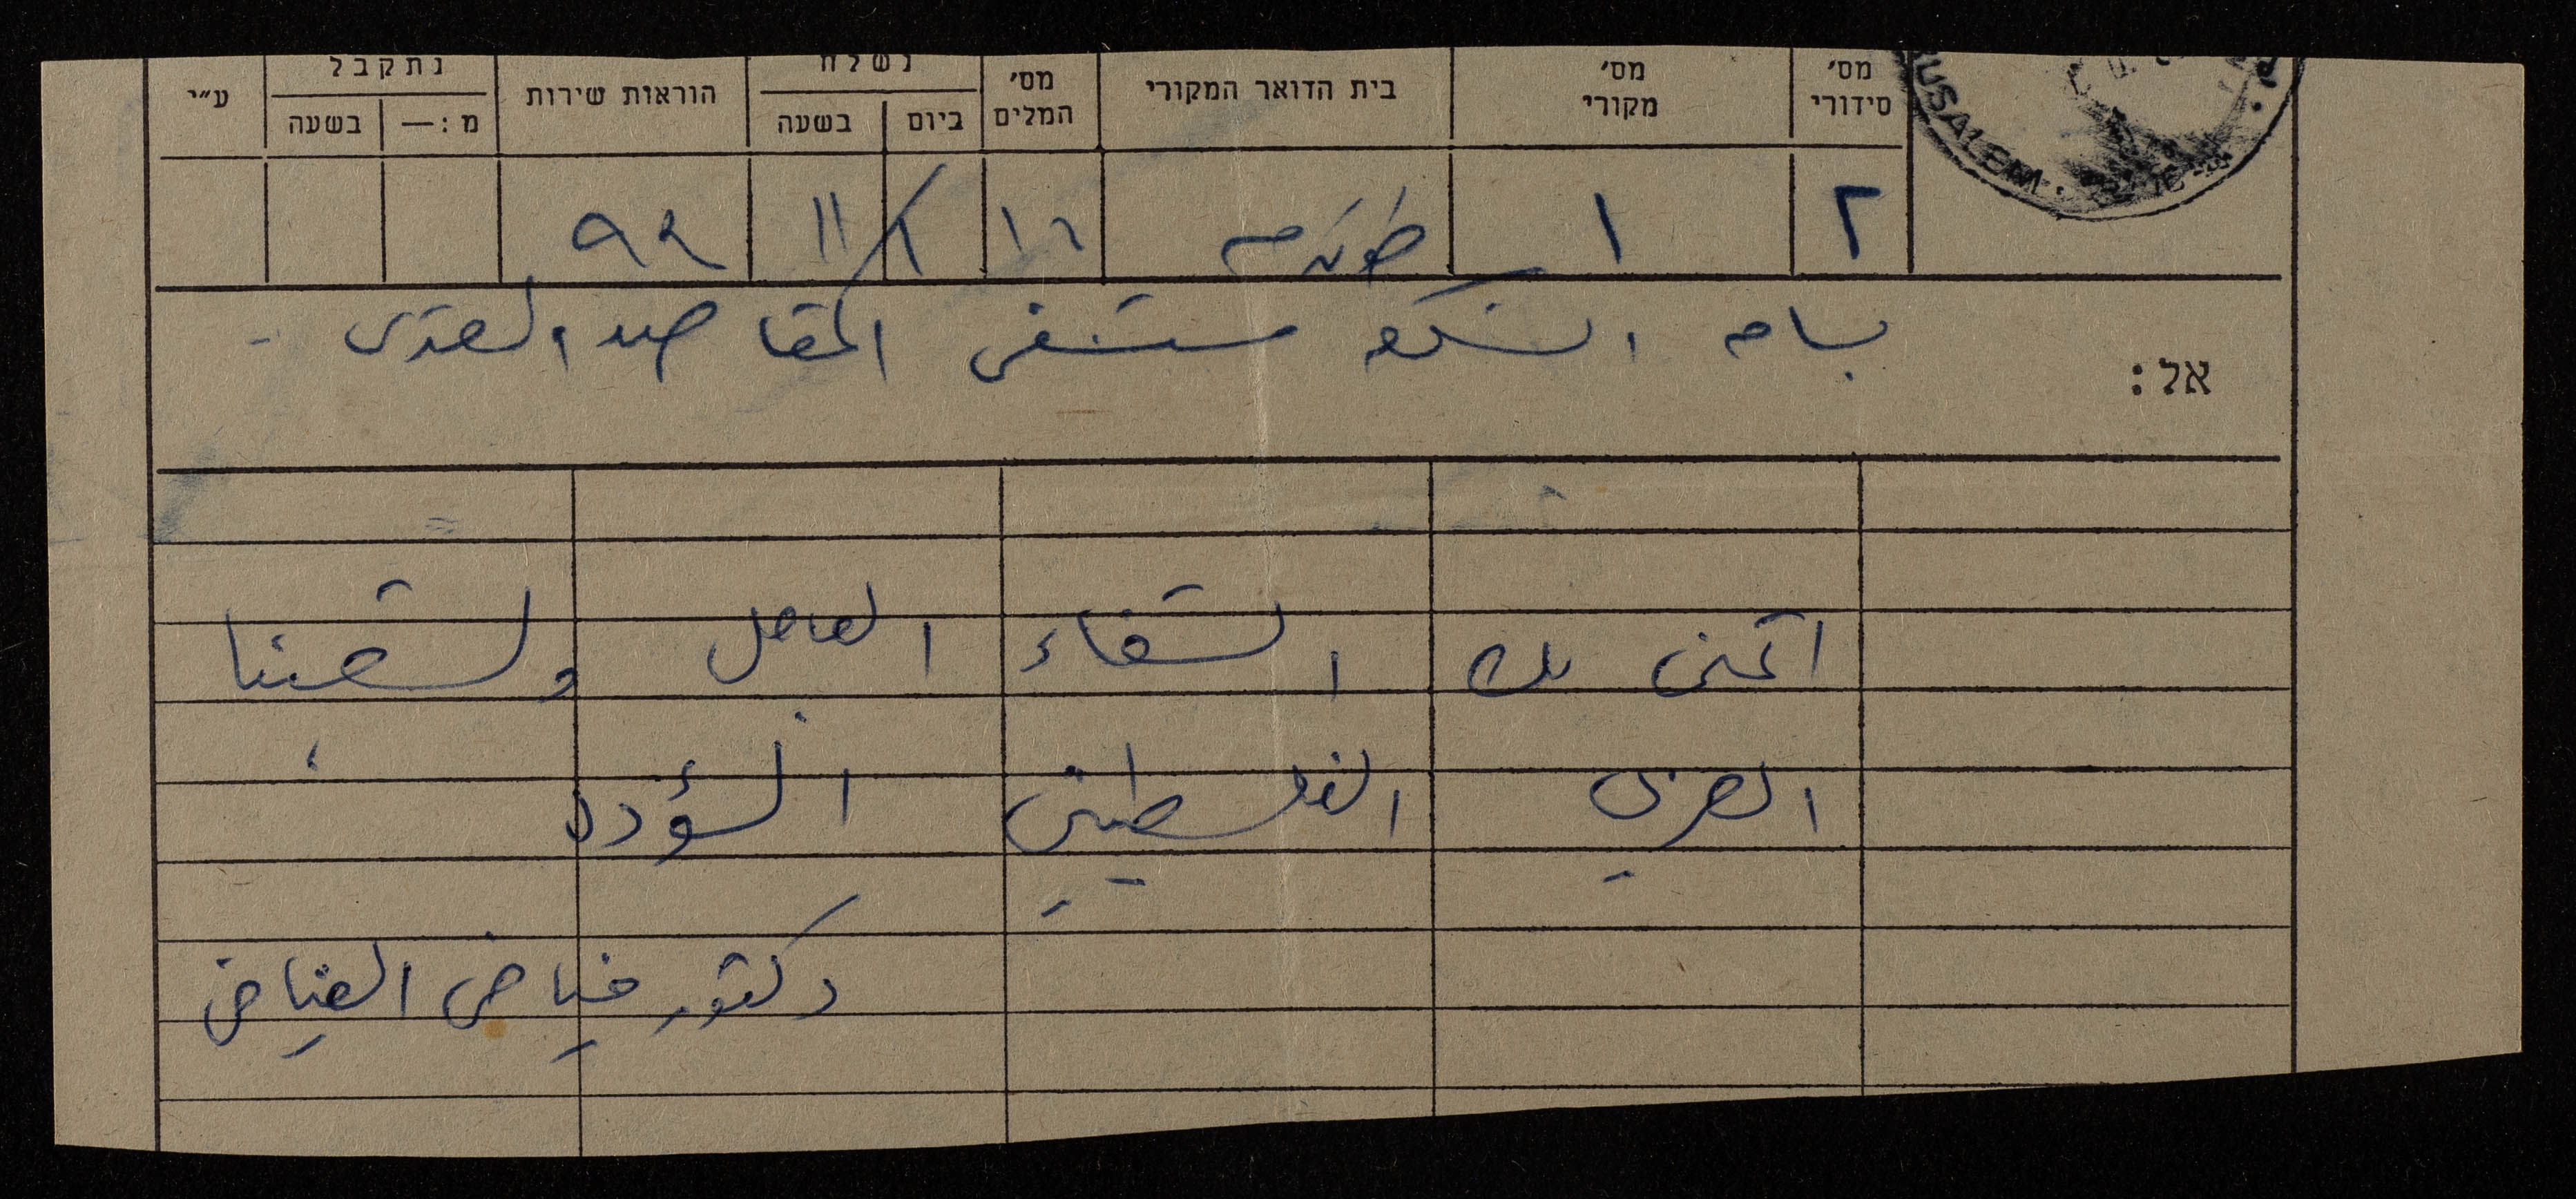 מס׳ סידורי מס׳ מקורי בית הדואר המקורי מס׳ המלים נשלח ביום בשעה הוראות שירות נתקבל מ : — בשעה ע״י
USALEM
٢ ١ طولكرم ١٦ ١١
אל :
بسام الشكعة مستشفى المقاصد القدس -
اتمنى لك الشفاء العاجل ولشعبنا
العربي الفلسطيني السؤدد
دكتور فياض الفياض